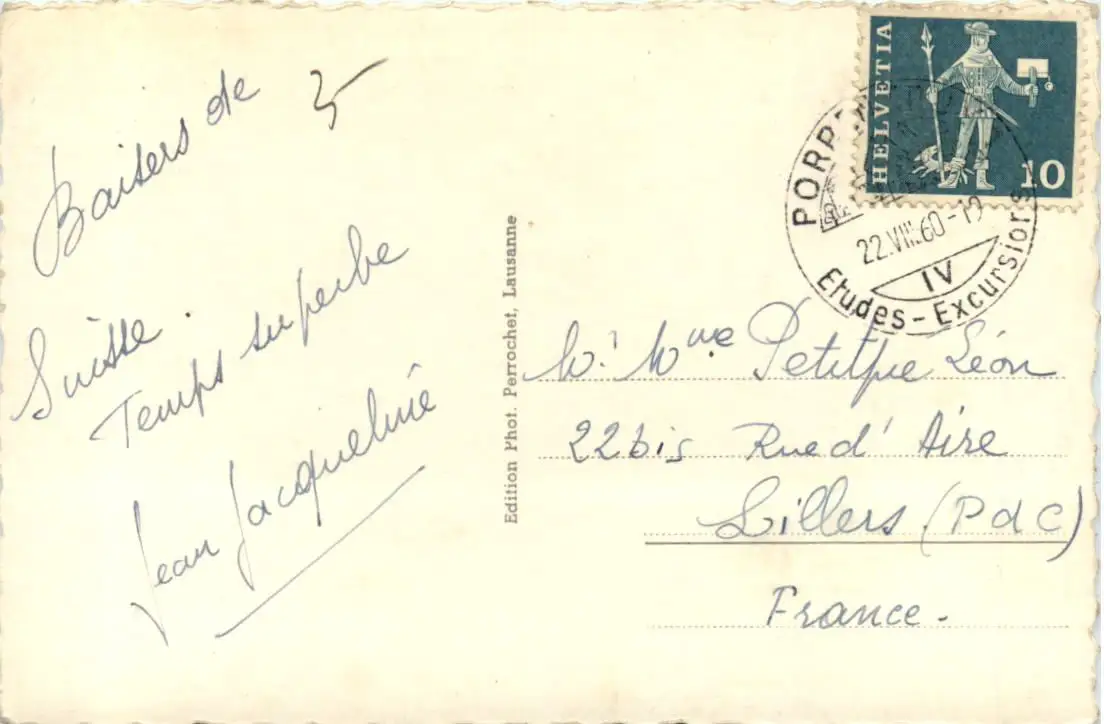 Baisers de
Suisse.
Temps superbe
Jean Jacqueline
Edition Phot. Perrochet, Lausanne
HELVETIA
10
22.VIII.60-19
IV
Etudes-Excursions
M. Mme Petitpre Léon
22bis Rue d'Aire
Lillers (PdC)
France.